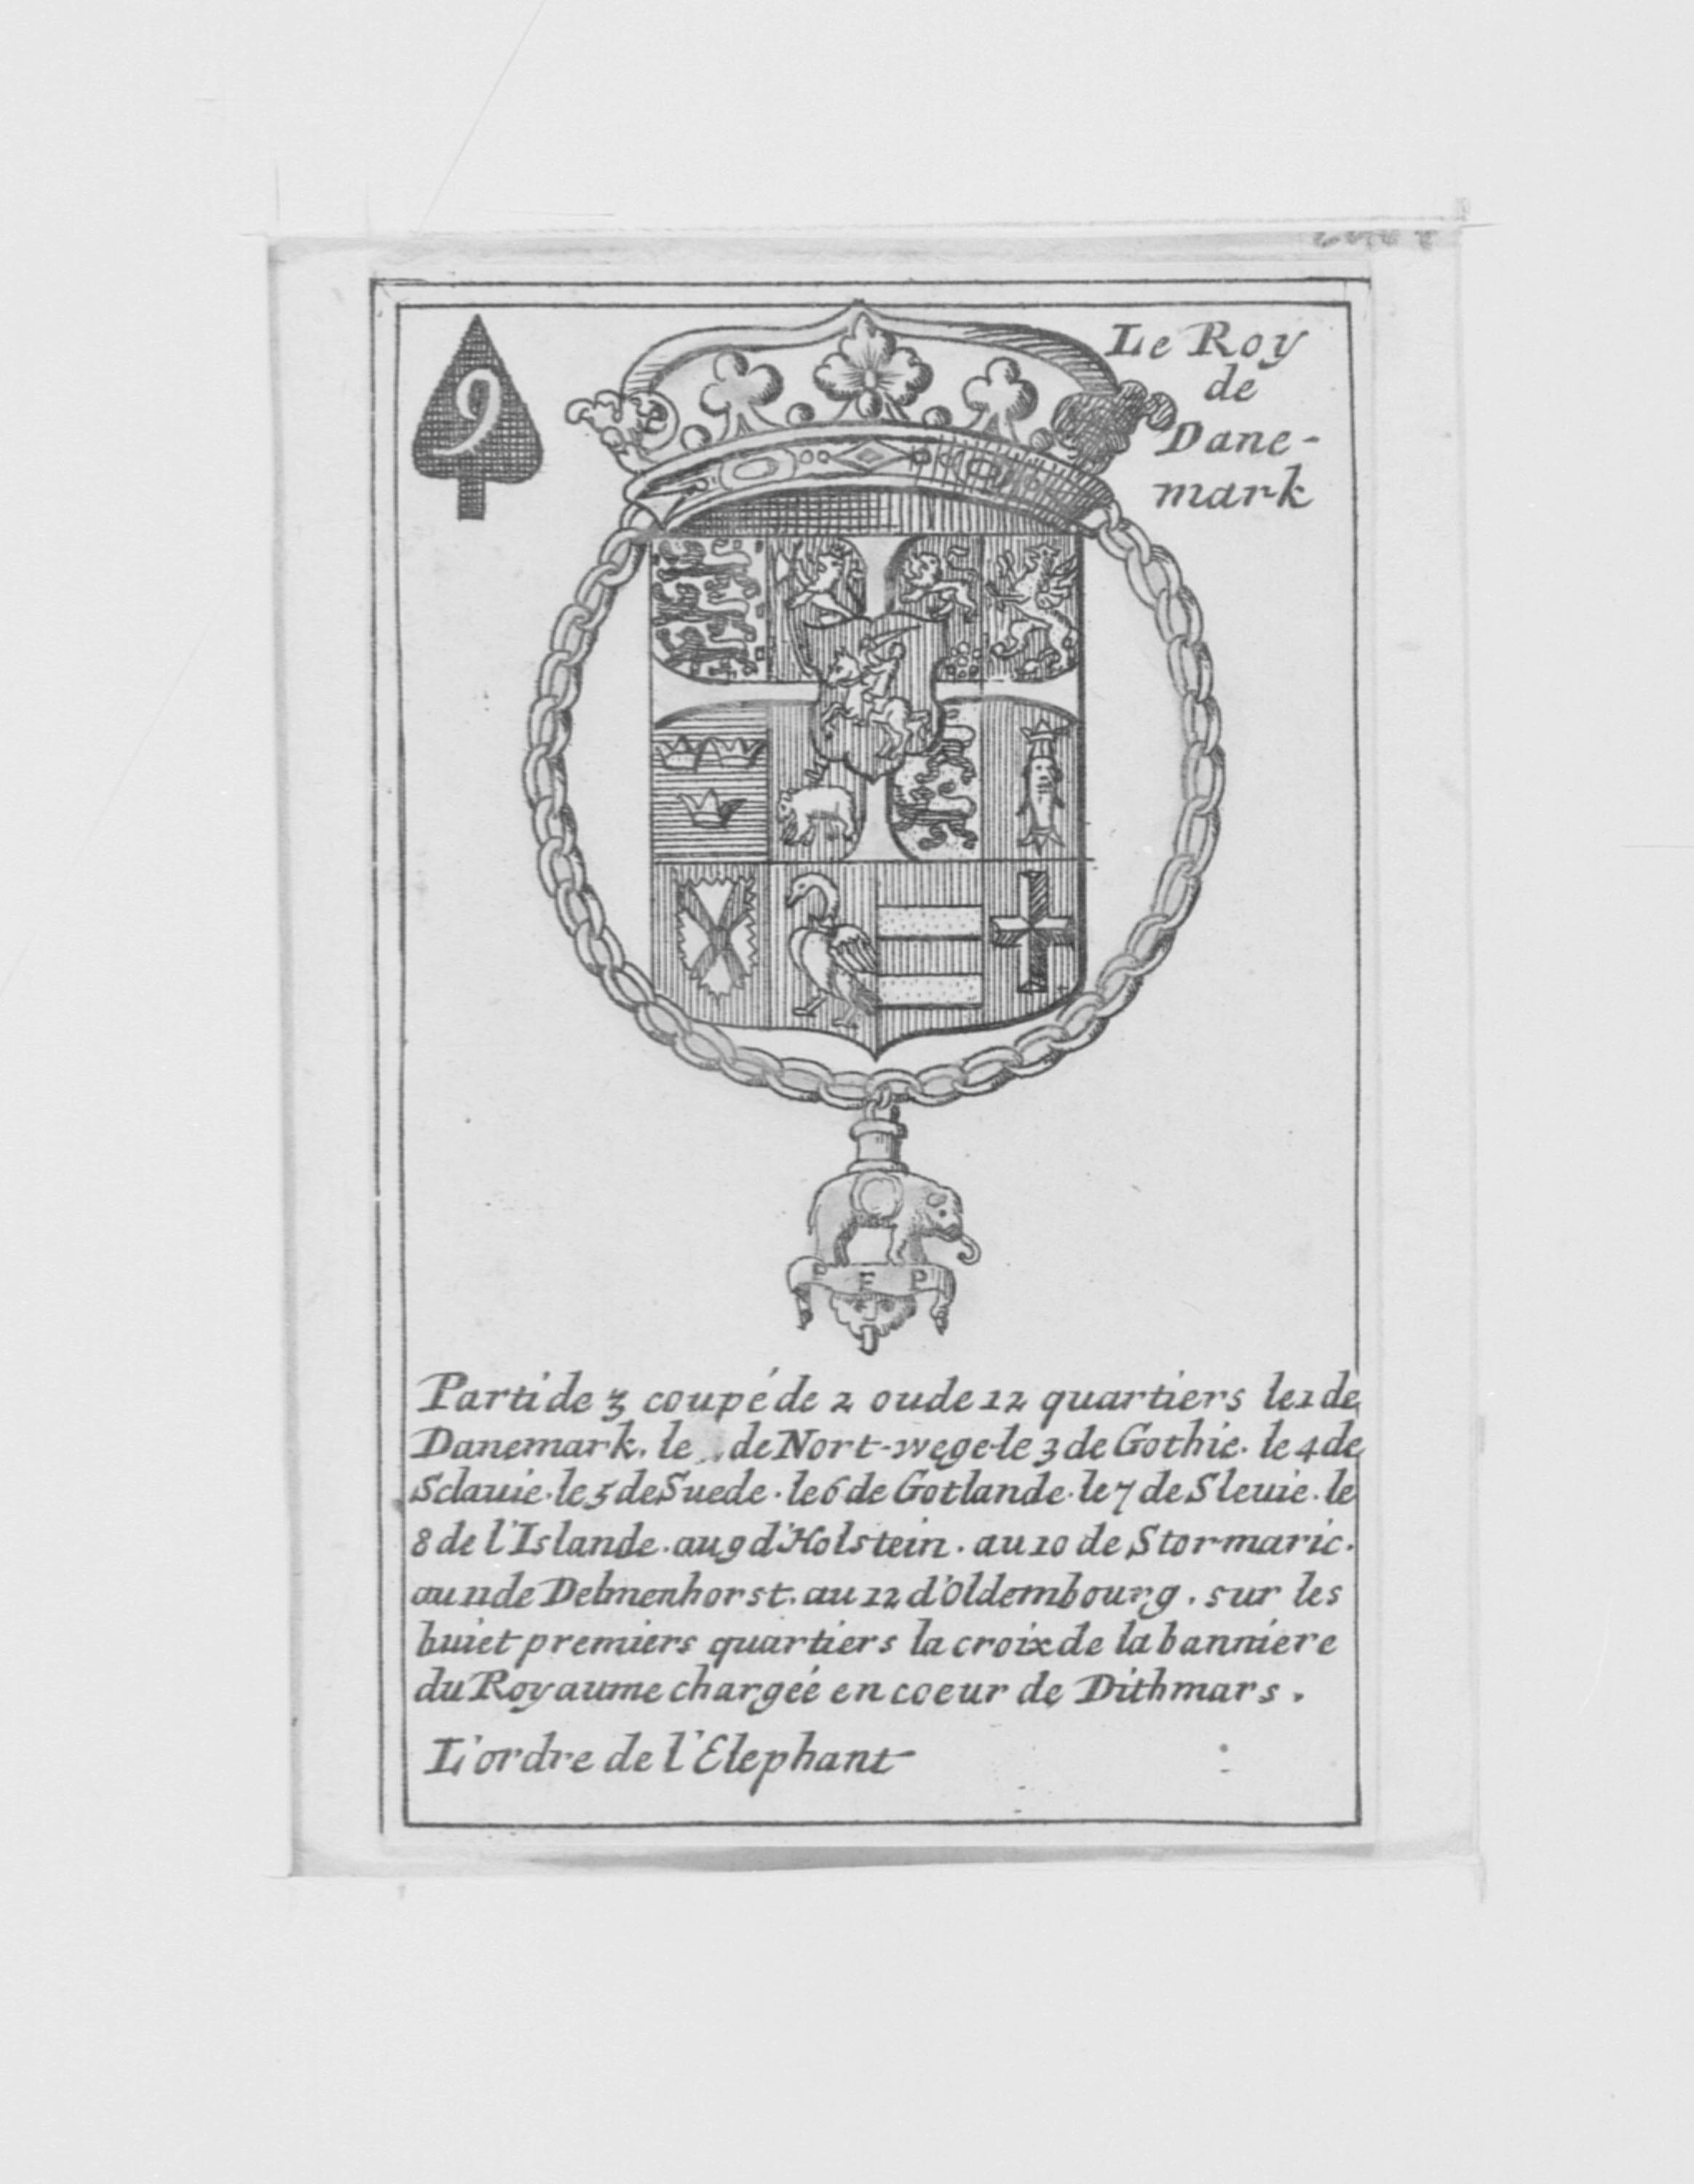 9
Le Roy
de
Dane-
mark
P F P
Parti de 3 coupé de 2 ou de 12 quartiers le 1 de
Danemark. le de Nort-wege. le 3 de Gothie. le 4 de
Sclauie. le 5 de Suede. le 6 de Gotlande. le 7 de Sleuie. le
8 de l'Islande. au 9 d'Holstein. au 10 de Stormarie.
au 11 de Delmenhorst. au 12 d'Oldembourg. sur les
huict premiers quartiers la croix de la banniere
du Royaume chargeé en coeur de Dithmars.
L'ordre de l'Elephant